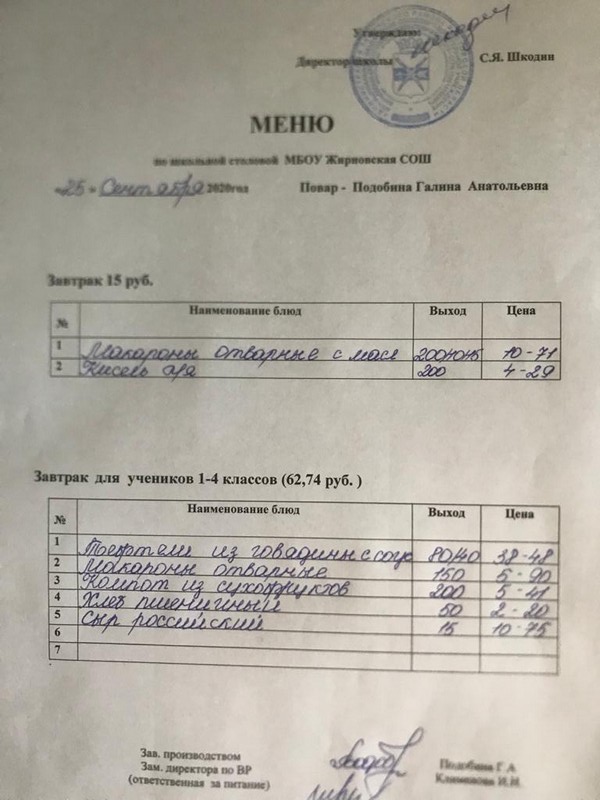 Утверждаю:
Директор школы С.Я. Шкодин
МЕНЮ
по школьной столовой МБОУ Жирновская СОШ
«25» Сентября 2020год Повар - Подобина Галина Анатольевна
Завтрак 15 руб.
№ Наименование блюд Выход Цена
1 Макароны отварные с масл 10-71
2 Кисель 200 4-29
Завтрак для учеников 1-4 классов (62,74 руб. )
№ Наименование блюд Выход Цена
1 из говядины с соус 80/40 38-48
2 Макароны отварные 150 5-90
3 Компот из сухофруктов 200 5-41
4 Хлеб пшеничный 50 2-20
5 Сыр российский 15 10-75
6
7
Зав. производством Подобина Г.А
Зам. директора по ВР Климанова И.Н.
(ответственная за питание)